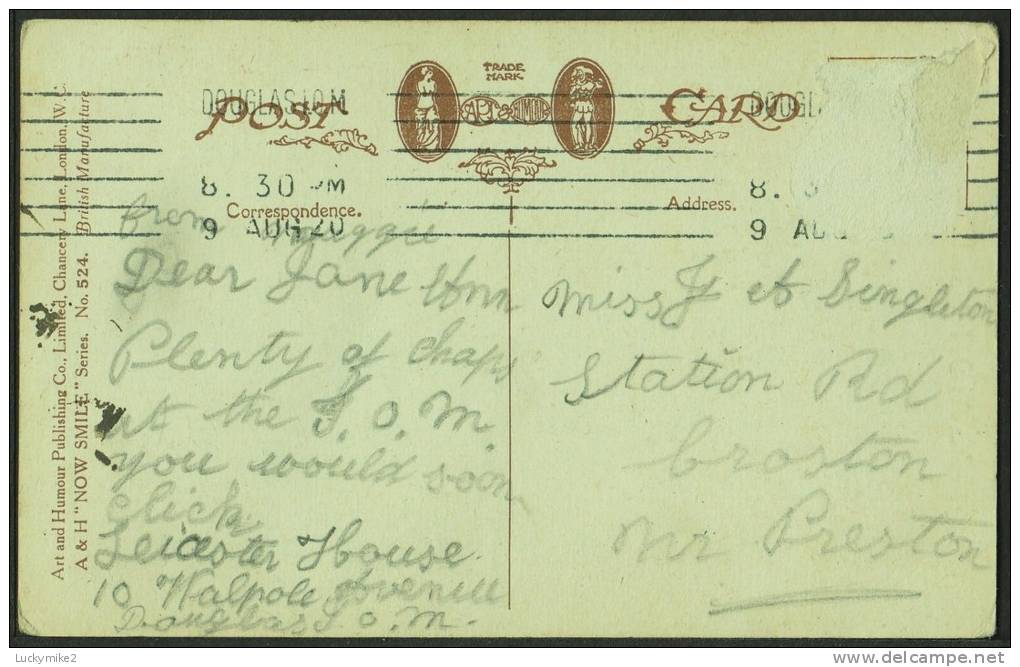 TRADE
MARK
POST CARD
ART & HUMOUR
DOUGLAS I.O.M
DOUGL
8. 30 PM
8.
9 AUG 20
9 AU
Correspondence.
Address.
Art and Humour Publishing Co., Limited, Chancery Lane, London, W.C.
A & H "NOW SMILE" Series. No. 524. British Manufacture
from Maggie
Dear Jane Ann
Plenty of chaps
at the I.o.M.
you would soon
click
Leicester House
10 Walpole Avenue
Douglas I.o.M.
Miss J A Singleton
Station Rd
Croston
Nr Preston
Luckymike2
delcampe.net